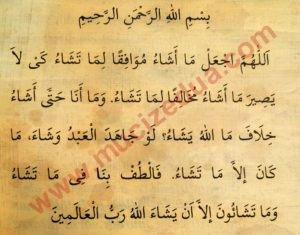 بِسْمِ اللهِ الرَّحْمٰنِ الرَّحِيْمِ
اَللّٰهُمَّ اجْعَلْ مَا أَشَاءُ مُوَافِقًا لِمَا تَشَاءُ كَىْ لاَ
يَصِيرَ مَا أَشَاءُ مُخَالِفًا لِمَا تَشَاءُ. وَمَا أَنَا حَتَّى أَشَاءُ
خِلَافَ مَا اللهُ يَشَاءُ؟ لَوْ جَاهَدَ الْعَبْدُ وَشَاءَ، مَا
كَانَ إِلاَّ مَا تَشَاءُ. فَالْطُفْ بِنَا فِى مَا تَشَاءُ
وَمَا تَشَائُونَ إِلاَّ اَنْ يَشَاءَ اللهُ رَبُّ الْعَالَمِينَ
www.mucizedua.com